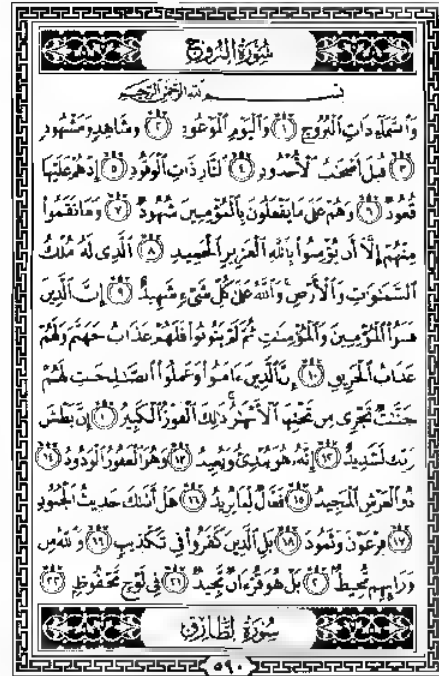 سُورَةُ البُرُوجِ
بِسْمِ ٱللَّهِ ٱلرَّحْمَٰنِ ٱلرَّحِيمِ
وَٱلسَّمَآءِ ذَاتِ ٱلْبُرُوجِ ١ وَٱلْيَوْمِ ٱلْمَوْعُودِ ٢ وَشَاهِدٍ وَمَشْهُودٍ
٣ قُتِلَ أَصْحَٰبُ ٱلْأُخْدُودِ ٤ ٱلنَّارِ ذَاتِ ٱلْوَقُودِ ٥ إِذْ هُمْ عَلَيْهَا
قُعُودٌ ٦ وَهُمْ عَلَىٰ مَا يَفْعَلُونَ بِٱلْمُؤْمِنِينَ شُهُودٌ ٧ وَمَا نَقَمُوا۟
مِنْهُمْ إِلَّآ أَن يُؤْمِنُوا۟ بِٱللَّهِ ٱلْعَزِيزِ ٱلْحَمِيدِ ٨ ٱلَّذِى لَهُۥ مُلْكُ
ٱلسَّمَٰوَٰتِ وَٱلْأَرْضِ ۚ وَٱللَّهُ عَلَىٰ كُلِّ شَىْءٍ شَهِيدٌ ٩ إِنَّ ٱلَّذِينَ
فَتَنُوا۟ ٱلْمُؤْمِنِينَ وَٱلْمُؤْمِنَٰتِ ثُمَّ لَمْ يَتُوبُوا۟ فَلَهُمْ عَذَابُ جَهَنَّمَ وَلَهُمْ
عَذَابُ ٱلْحَرِيقِ ١٠ إِنَّ ٱلَّذِينَ ءَامَنُوا۟ وَعَمِلُوا۟ ٱلصَّٰلِحَٰتِ لَهُمْ
جَنَّٰتٌ تَجْرِى مِن تَحْتِهَا ٱلْأَنْهَٰرُ ۚ ذَٰلِكَ ٱلْفَوْزُ ٱلْكَبِيرُ ١١ إِنَّ بَطْشَ
رَبِّكَ لَشَدِيدٌ ١٢ إِنَّهُۥ هُوَ يُبْدِئُ وَيُعِيدُ ١٣ وَهُوَ ٱلْغَفُورُ ٱلْوَدُودُ ١٤
ذُو ٱلْعَرْشِ ٱلْمَجِيدُ ١٥ فَعَّالٌ لِّمَا يُرِيدُ ١٦ هَلْ أَتَىٰكَ حَدِيثُ ٱلْجُنُودِ
١٧ فِرْعَوْنَ وَثَمُودَ ١٨ بَلِ ٱلَّذِينَ كَفَرُوا۟ فِى تَكْذِيبٍ ١٩ وَٱللَّهُ مِن
وَرَآئِهِم مُّحِيطٌۢ ٢٠ بَلْ هُوَ قُرْءَانٌ مَّجِيدٌ ٢١ فِى لَوْحٍ مَّحْفُوظٍۭ ٢٢
سُورَةُ الطَّارِقِ
٥٩٠